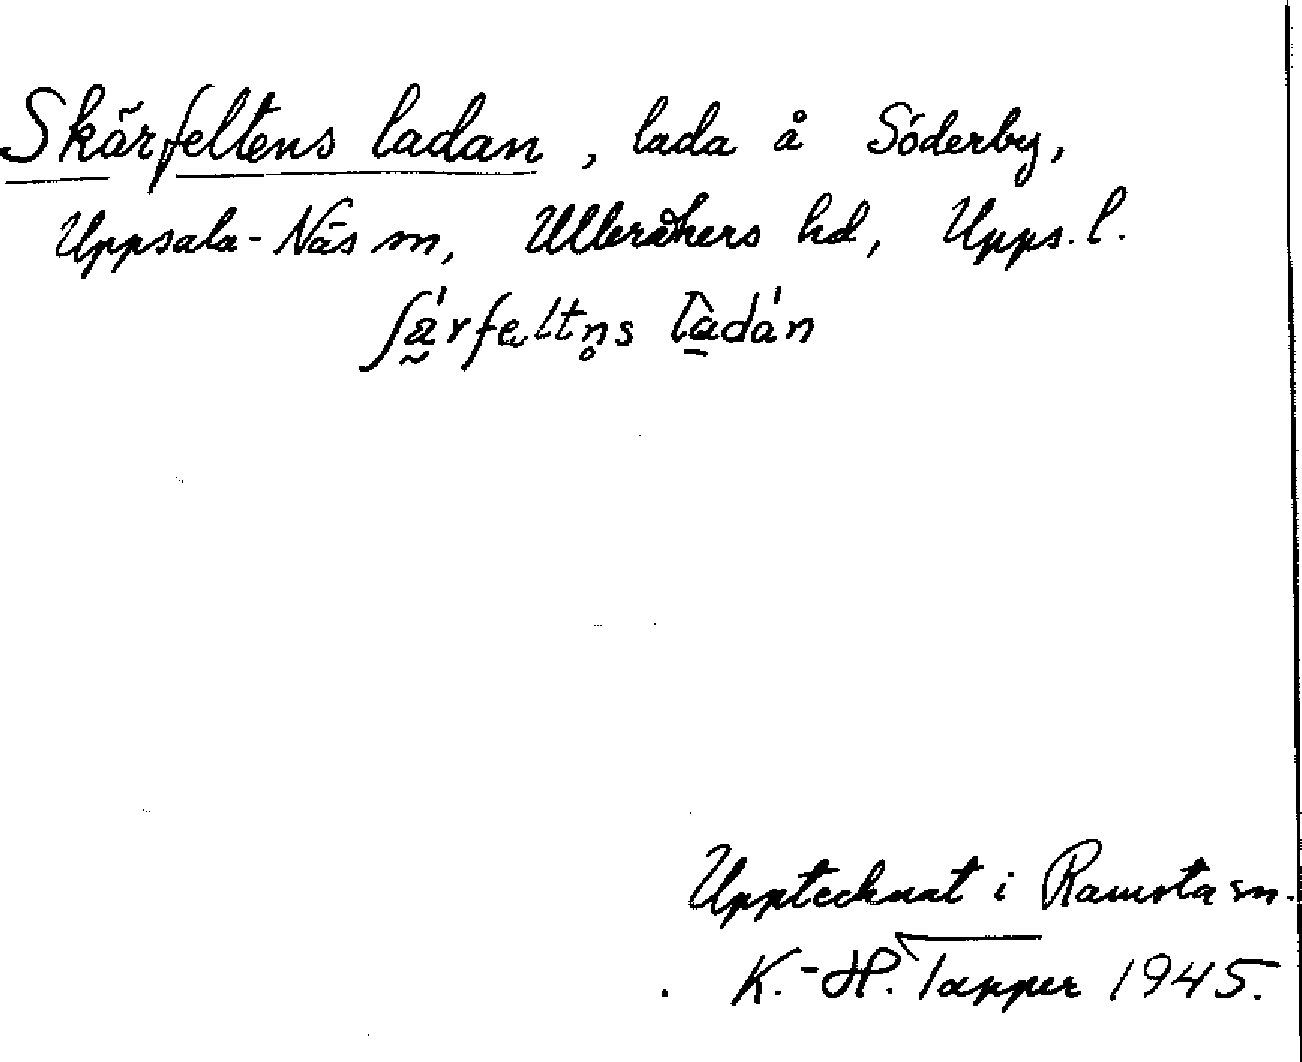 Skärfeltens ladan, lada å Söderby,
Uppsala-Näs sn, Ulleråkers hd, Upps. l.
ʃä̰́rfeltn̥s là̱dán
Upptecknat i Ramsta sn.
K.-H. Tapper 1945.